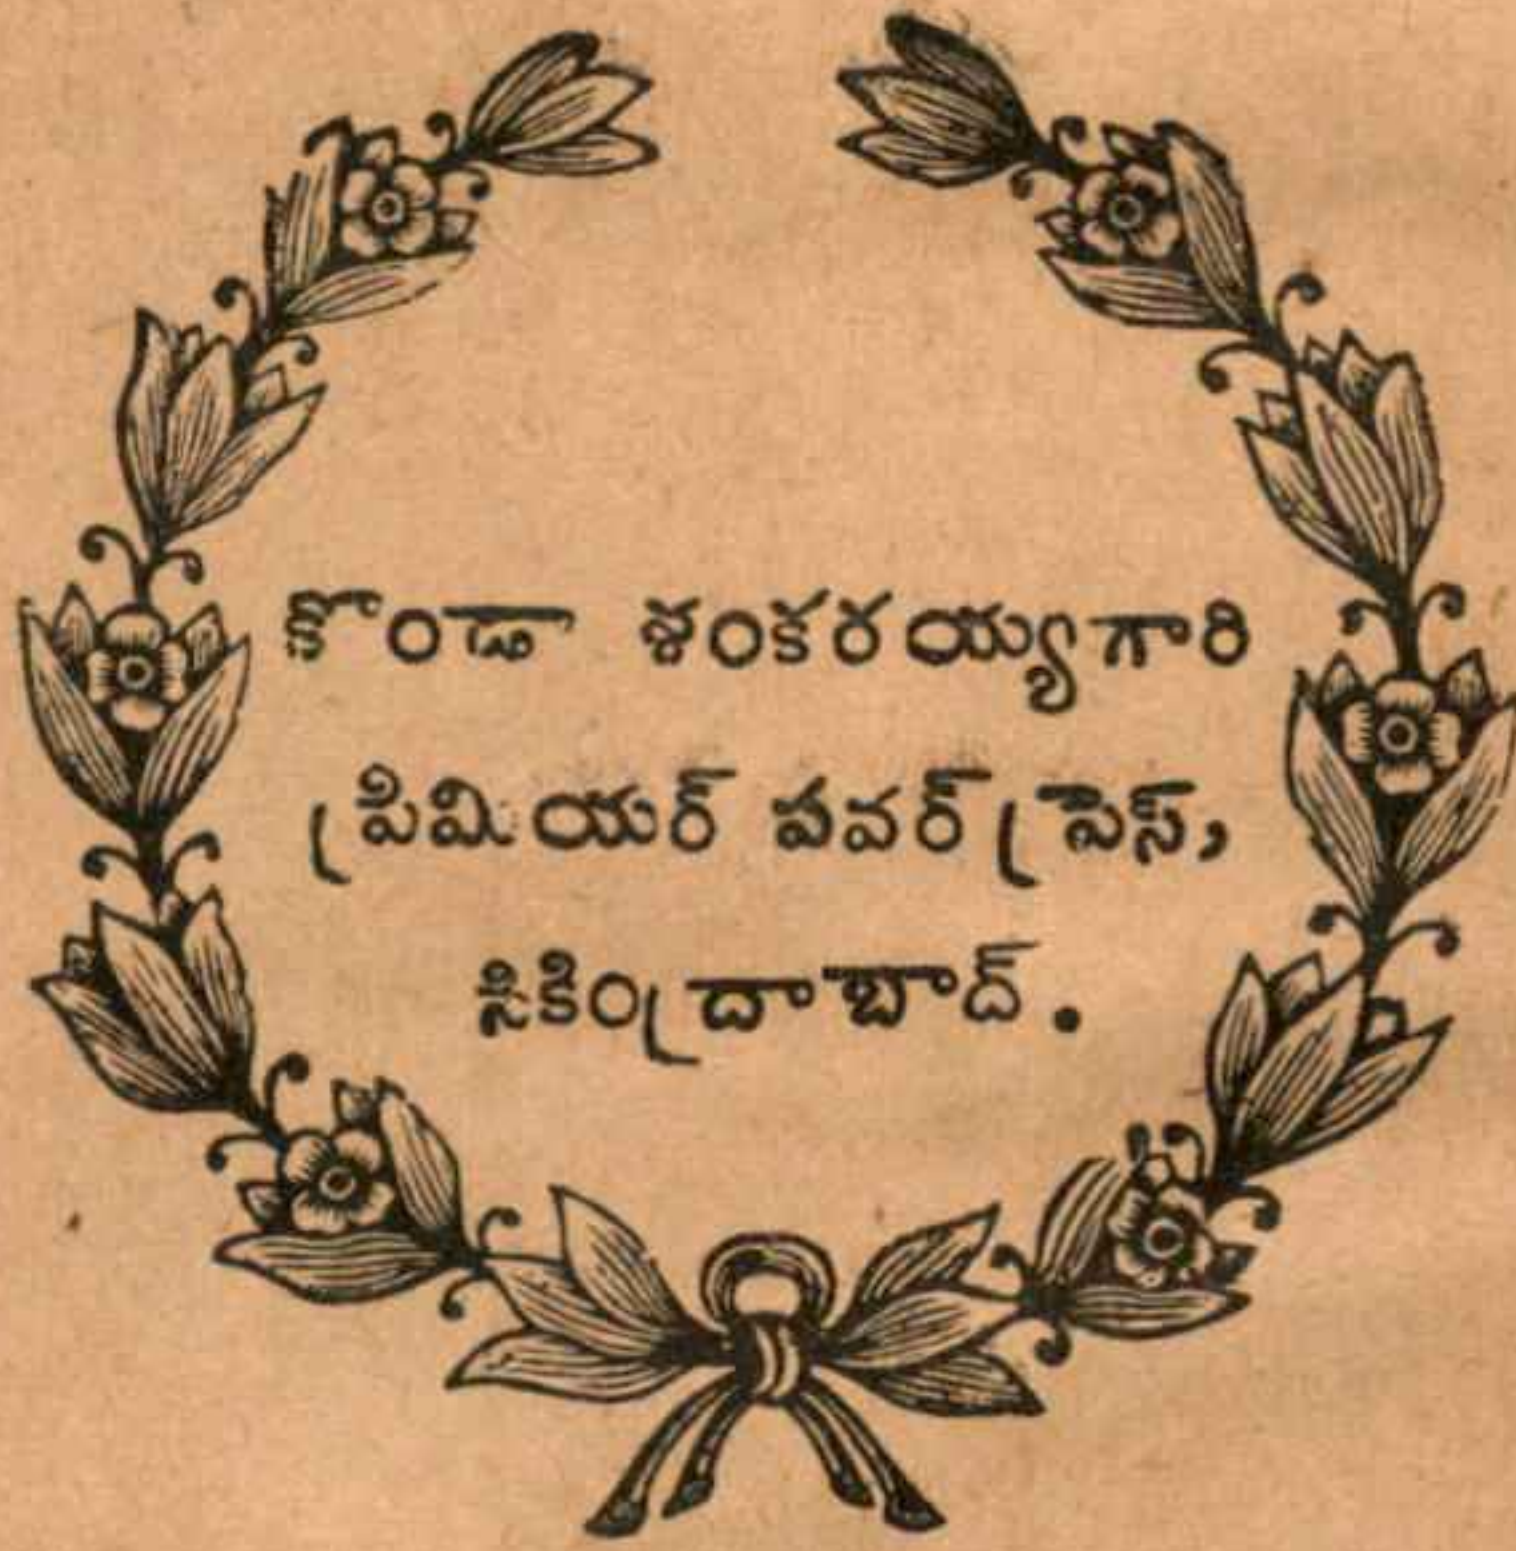 కొండా శంకరయ్యగారి
ప్రిమియర్ పవర్ ప్రెస్,
సికింద్రాబాద్.